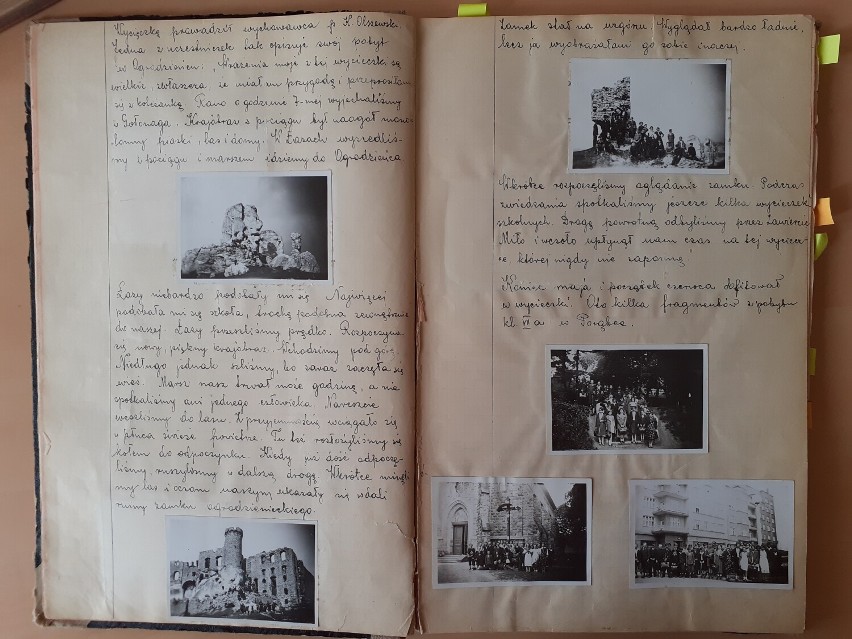 Wycieczkę prowadził wychowawca p. K. Olszewski.
Jedna z uczestniczek tak opisuje swój pobyt
w Ogrodzieńcu: „Wrażenia moje z tej wycieczki są
wielkie, zwłaszcza, że miałam przygodę i
się z koleżanką. Rano o godzinie 7-mej wyjechaliśmy
z Gołonoga. Krajobraz z pociągu był
piaski, las i domy. W Łazach wysiedliś-
my z pociągu i marszem idziemy do Ogrodzieńca
Łazy niebardzo podobały mi się. Najwięcej
podobała mi się szkoła, trochę podobna zewnętrznie
do naszej. Łazy przeszliśmy prędko. Rozpoczyna
się nowy, piękny krajobraz. Wchodzimy pod górę.
Niedługo jednak szliśmy, bo zaraz zaczęła się
wieś. Marsz nasz trwał może godzinę, a nie
spotkaliśmy ani jednego człowieka. Nareszcie
weszliśmy do lasu. Z przyjemnością wciągało się
w płuca świeże powietrze. Tu też rozłożyliśmy się
kołem do odpoczynku. Kiedy już dość odpoczę-
liśmy, ruszyliśmy w dalszą drogę. Wkrótce minęliś-
my las i oczom naszym ukazały się w dali
ruiny zamku ogrodzienieckiego.
Zamek stał na wzgórzu. Wyglądał bardzo ładnie,
lecz ja wyobrażałam go sobie inaczej.
Wkrótce rozpoczęliśmy oglądanie zamku. Podczas
zwiedzania spotkaliśmy jeszcze kilka wycieczek
szkolnych. Drogę powrotną odbyliśmy przez Zawiercie.
Miło i wesoło upłynął nam czas na tej wyciecz-
ce, której nigdy nie zapomnę."
Koniec maja i początek czerwca obfitował
w wycieczki. Oto kilka fragmentów z pobytu
kl. VI a w Porąbce.